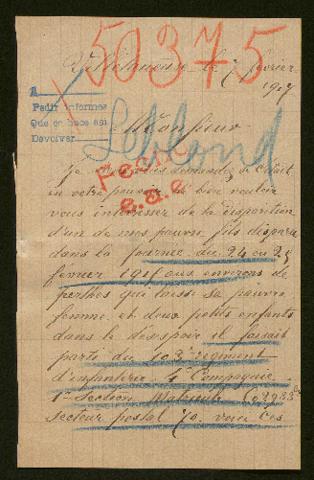 50375
le 7 février
1917
A
Pedir informes
Que se hace así
Devolver
Leblond
Monsieur
Je vous demande, si c'était
en votre pouvoir de bien vouloir
vous intéresser de la disparition
d'un de mes pauvres fils disparu
dans la journée du 24 au 25
fevrier 1915 aux environs de
perthes qui laisse sa pauvre
femme et deux petits enfants
dans le desespoir il faisait
parti du 103 regiment
d'infanterie 4e Compagnie
1re Section Matricule
secteur postal 70 voici ces